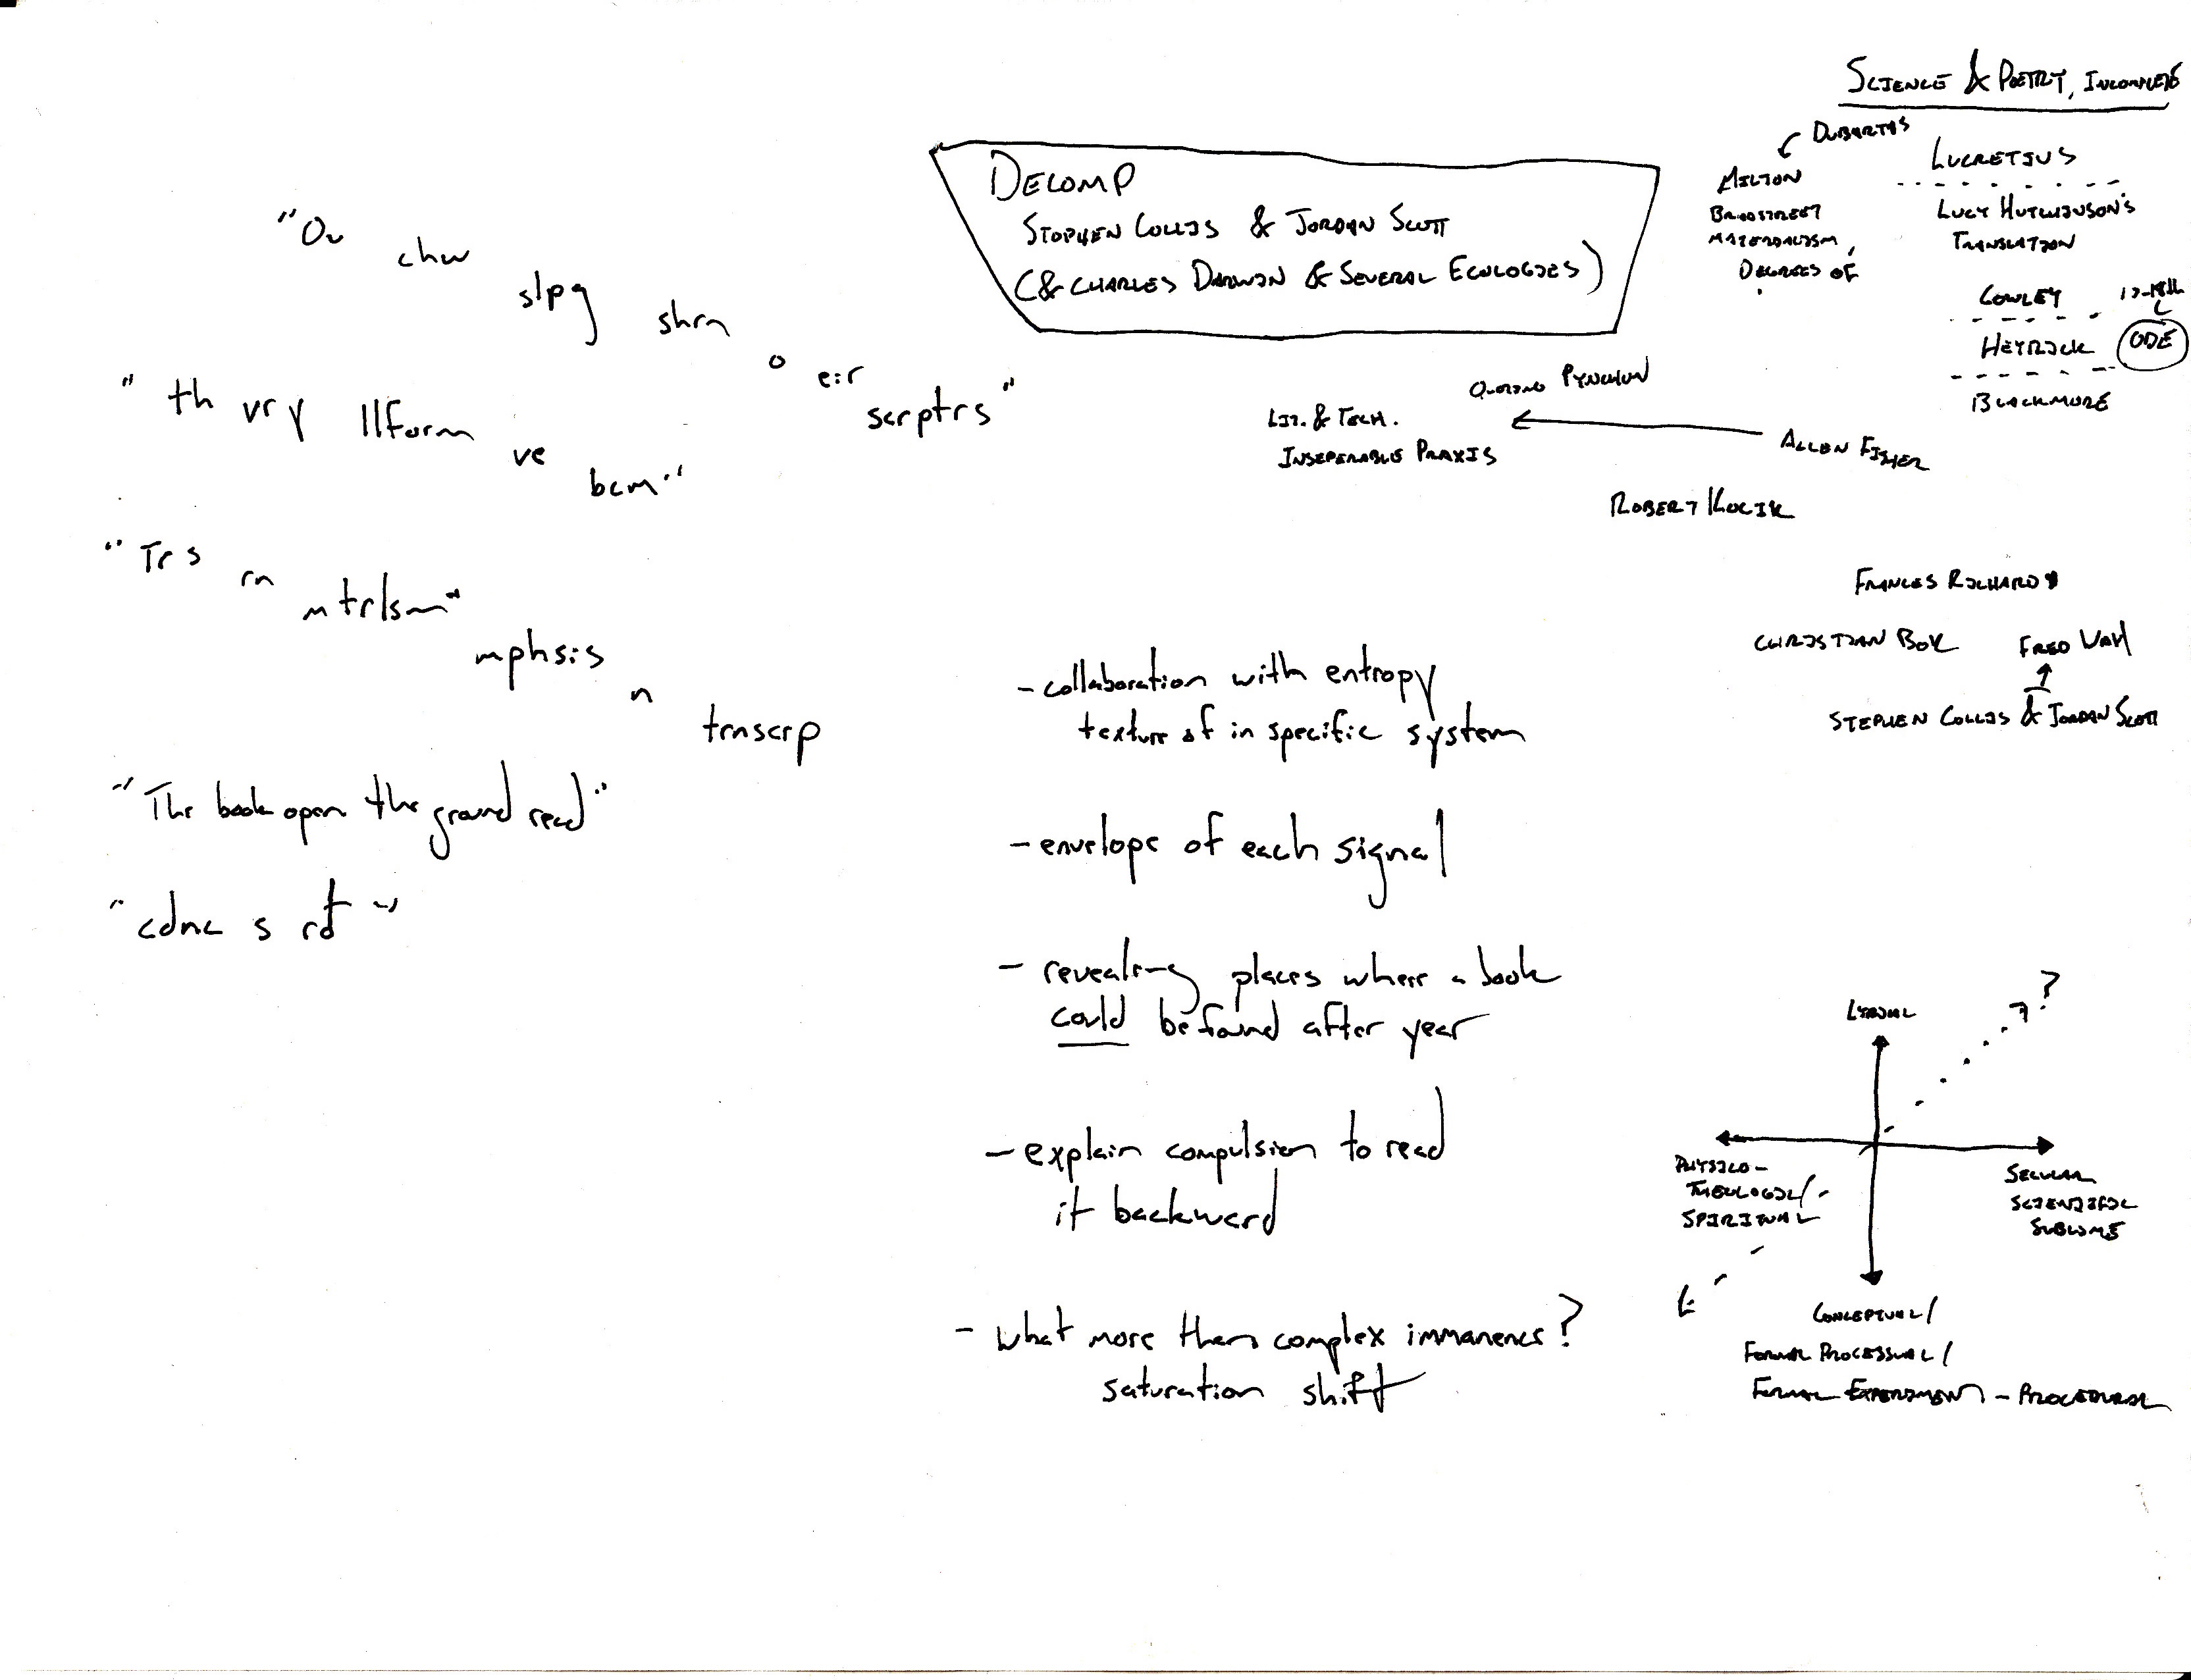 SCIENCE & POETRY, INCOMPLETE
DUBARTAS
MILTON
BRADSTREET
MATERIALISM,
DEGREES OF
LUCRETIUS
LUCY HUTCHINSON'S
TRANSLATION
COWLEY
17-18th
C
HERRICK
ODE
BLACKMORE
DECOMP
STEPHEN COLLIS & JORDAN SCOTT
(& CHARLES DARWIN & SEVERAL ECOLOGIES)
QUOTING PYNCHON
LIT. & TECH.
INSEPERABLE PRAXIS
ALLEN FISHER
ROBERT KOCIK
FRANCES RICHARD
CHRISTIAN BOK
FRED WAH
STEPHEN COLLIS & JORDAN SCOTT
"Ou chw slpg shrn o eir scrptrs"
"th vry llform ve bcm"
"Trs rn mtrlsm"
mphsis n trnscrp
"The book open the ground read"
"cdnc s rd"
- collaboration with entropy
texture of in specific system
- envelope of each signal
- revealing places where a book
could be found after year
- explain compulsion to read
it backward
- what more than complex immanence?
saturation shift
LYRICAL
?
PHYSICO-
THEOLOGICAL/
SPIRITUAL
SECULAR
SCIENTIFIC
SUBLIME
CONCEPTUAL/
FORMAL PROCESSUAL/
FORMAL EXPERIMENT - PROCEDURAL